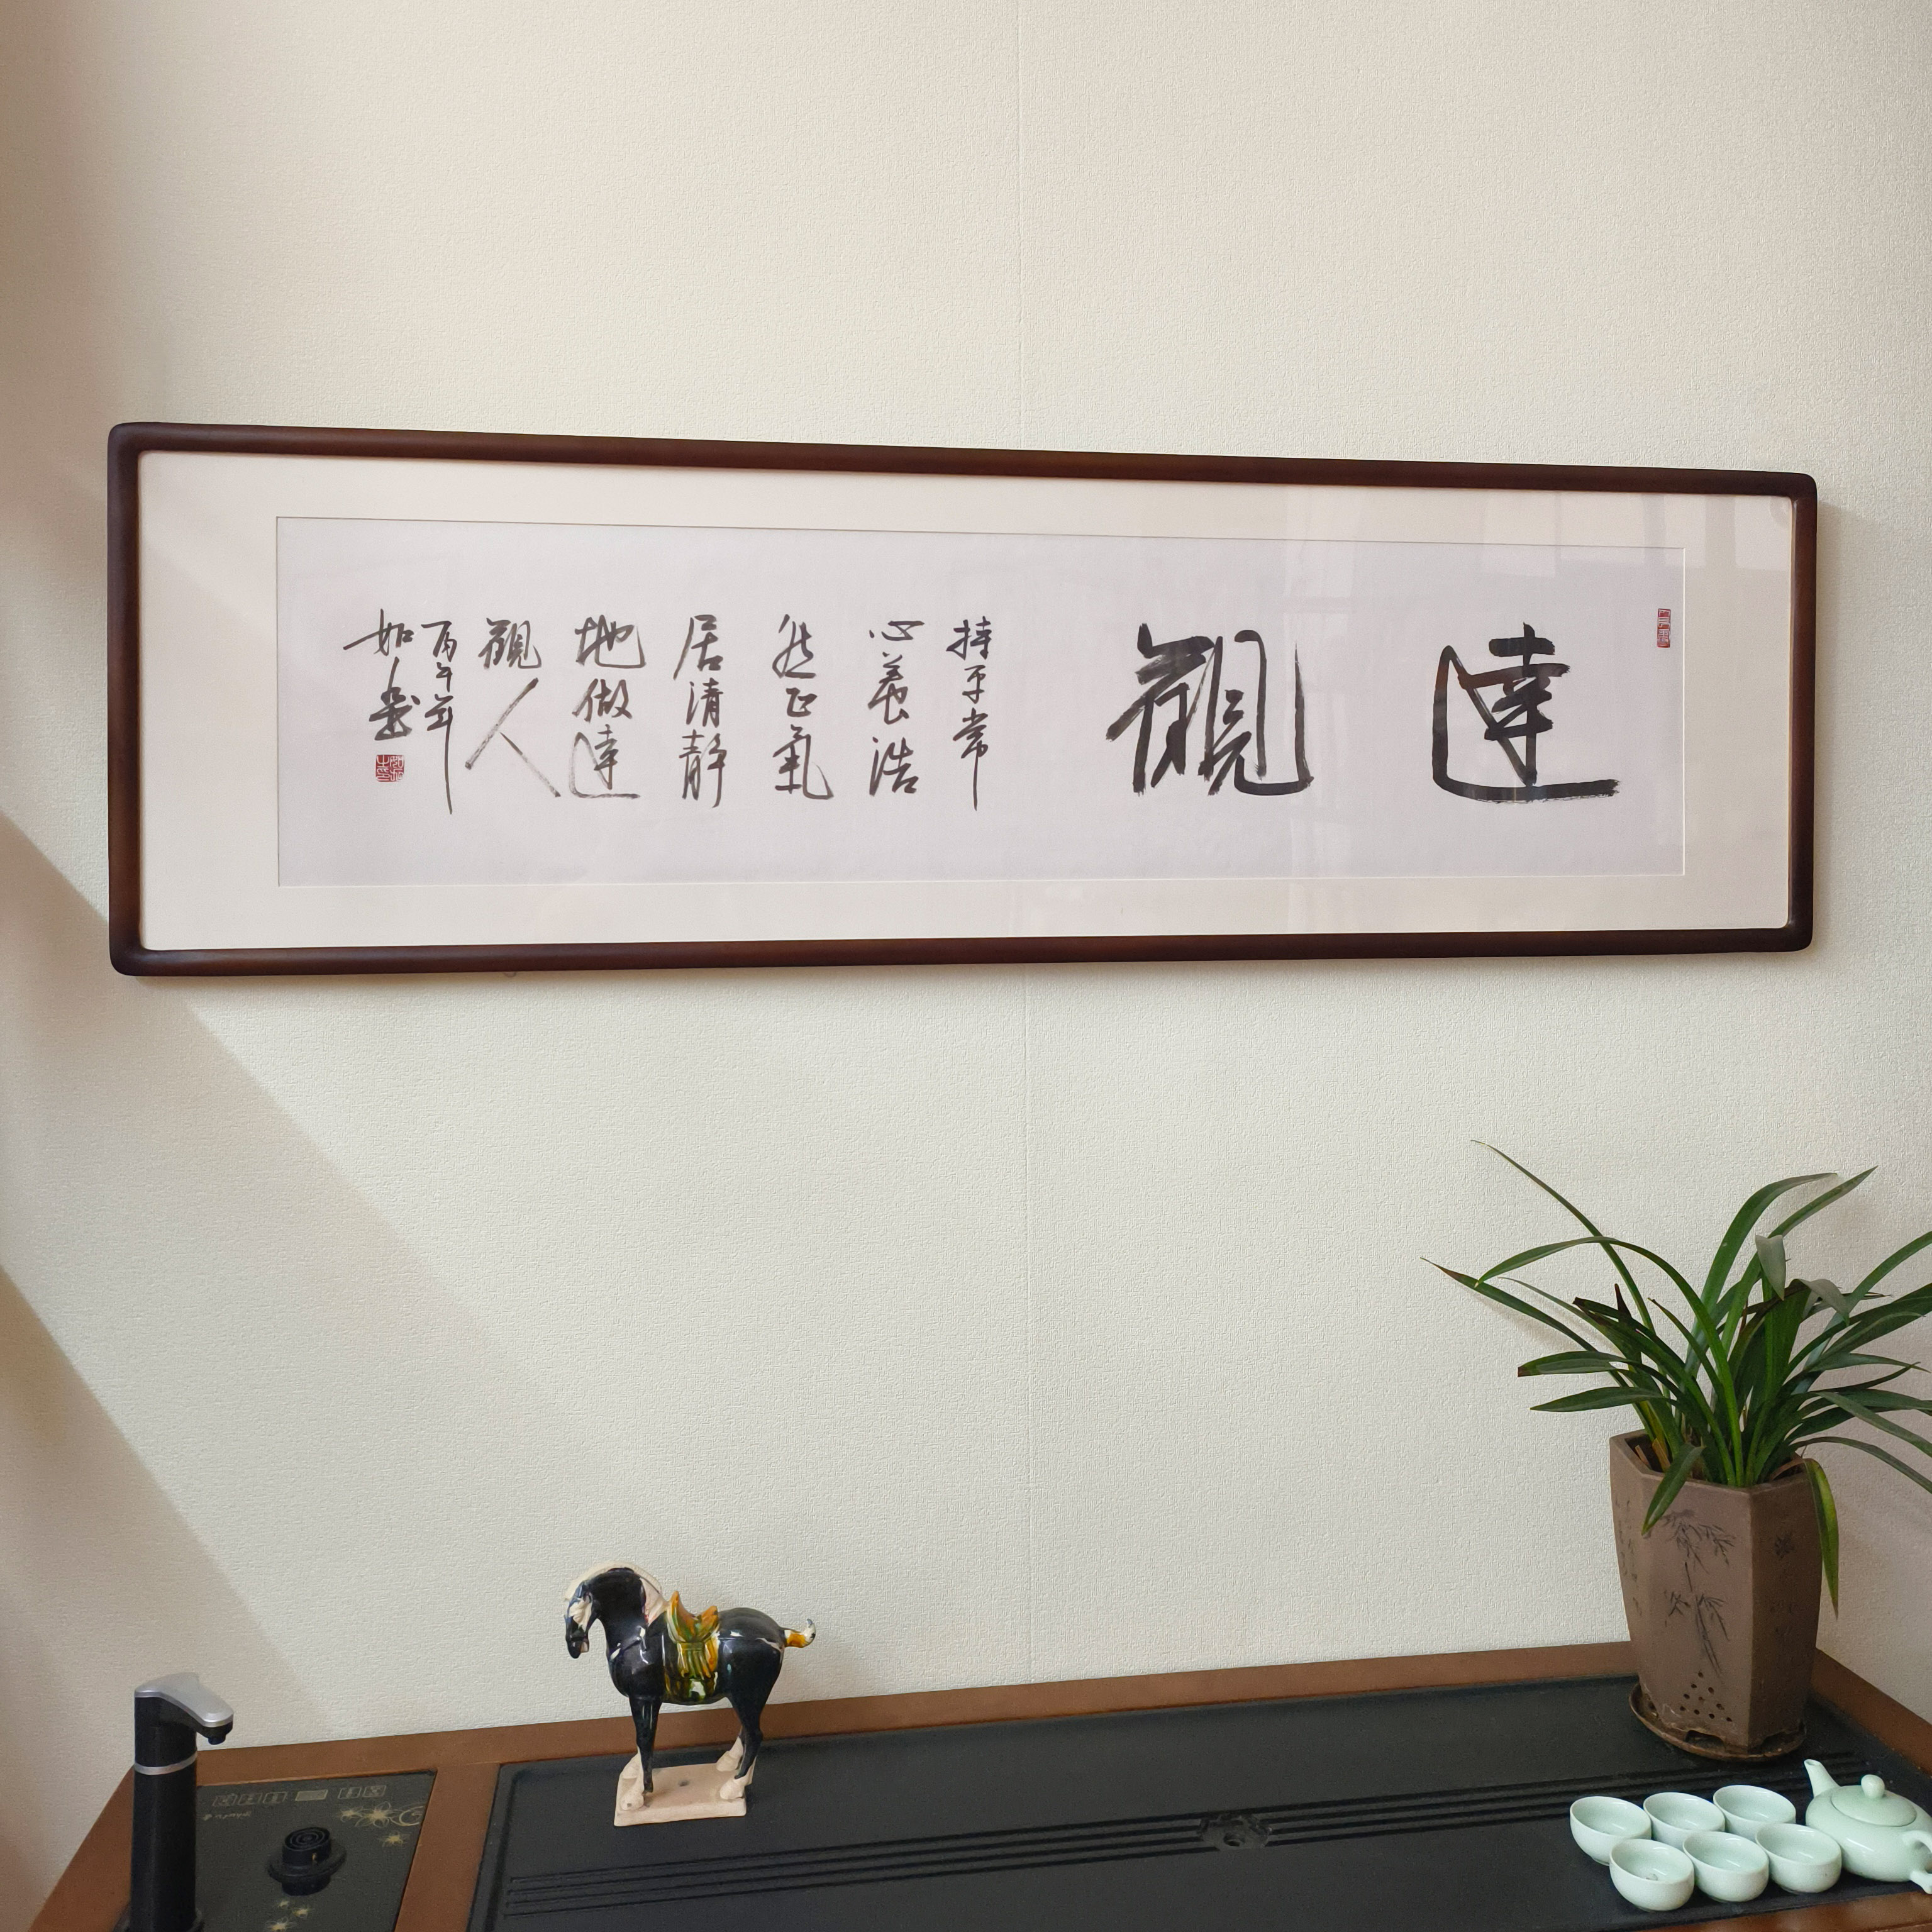 達觀
持平常
心養浩
然正氣
居清靜
地做達
觀人
丙午年
如